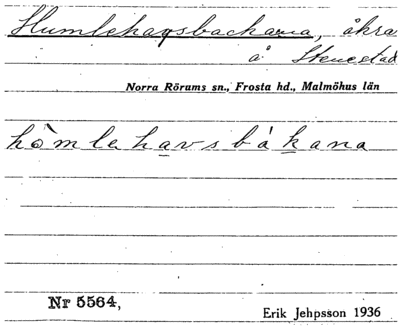 Humlehagsbackarna, åkra
å Stenestad
Norra Rörums sn., Frosta hd., Malmöhus län
hòmlehavsbákana
Nr 5564,
Erik Jehpsson 1936